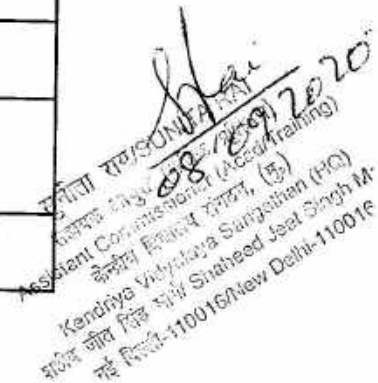 08/09/2020
सुनीता राय/SUNITA RAI
Assistant Commissioner (Acad/Training)
केन्द्रीय विद्यालय संगठन, (मु.)
Kendriya Vidyalaya Sangathan (HQ)
शहीद जीत सिंह मार्ग Shaheed Jeet Singh M
नई दिल्ली-110016/New Delhi-110016